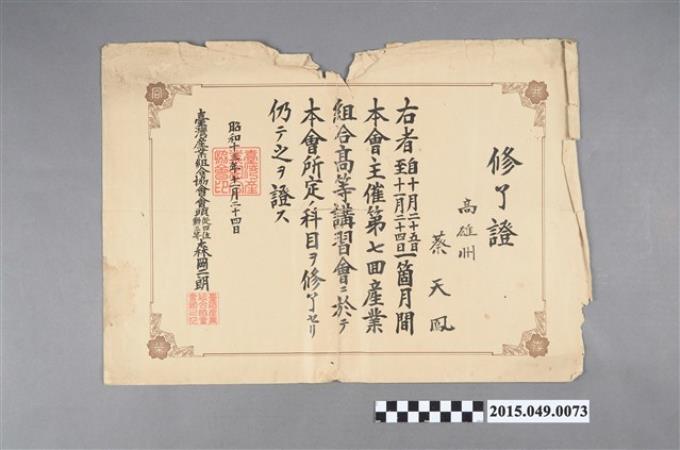 修了證
高雄州
蔡天鳳
右者自十月二十五日至十一月二十四日一箇月間
本會主催第七回産業
組合高等講習會ニ於テ
本會所定ノ科目ヲ修了セリ
仍テ之ヲ證ス
昭和十三年十一月二十四日
臺灣産業組合協會會頭從四位勳三等森岡二朗
臺灣産業組合協會印
2015.049.0073